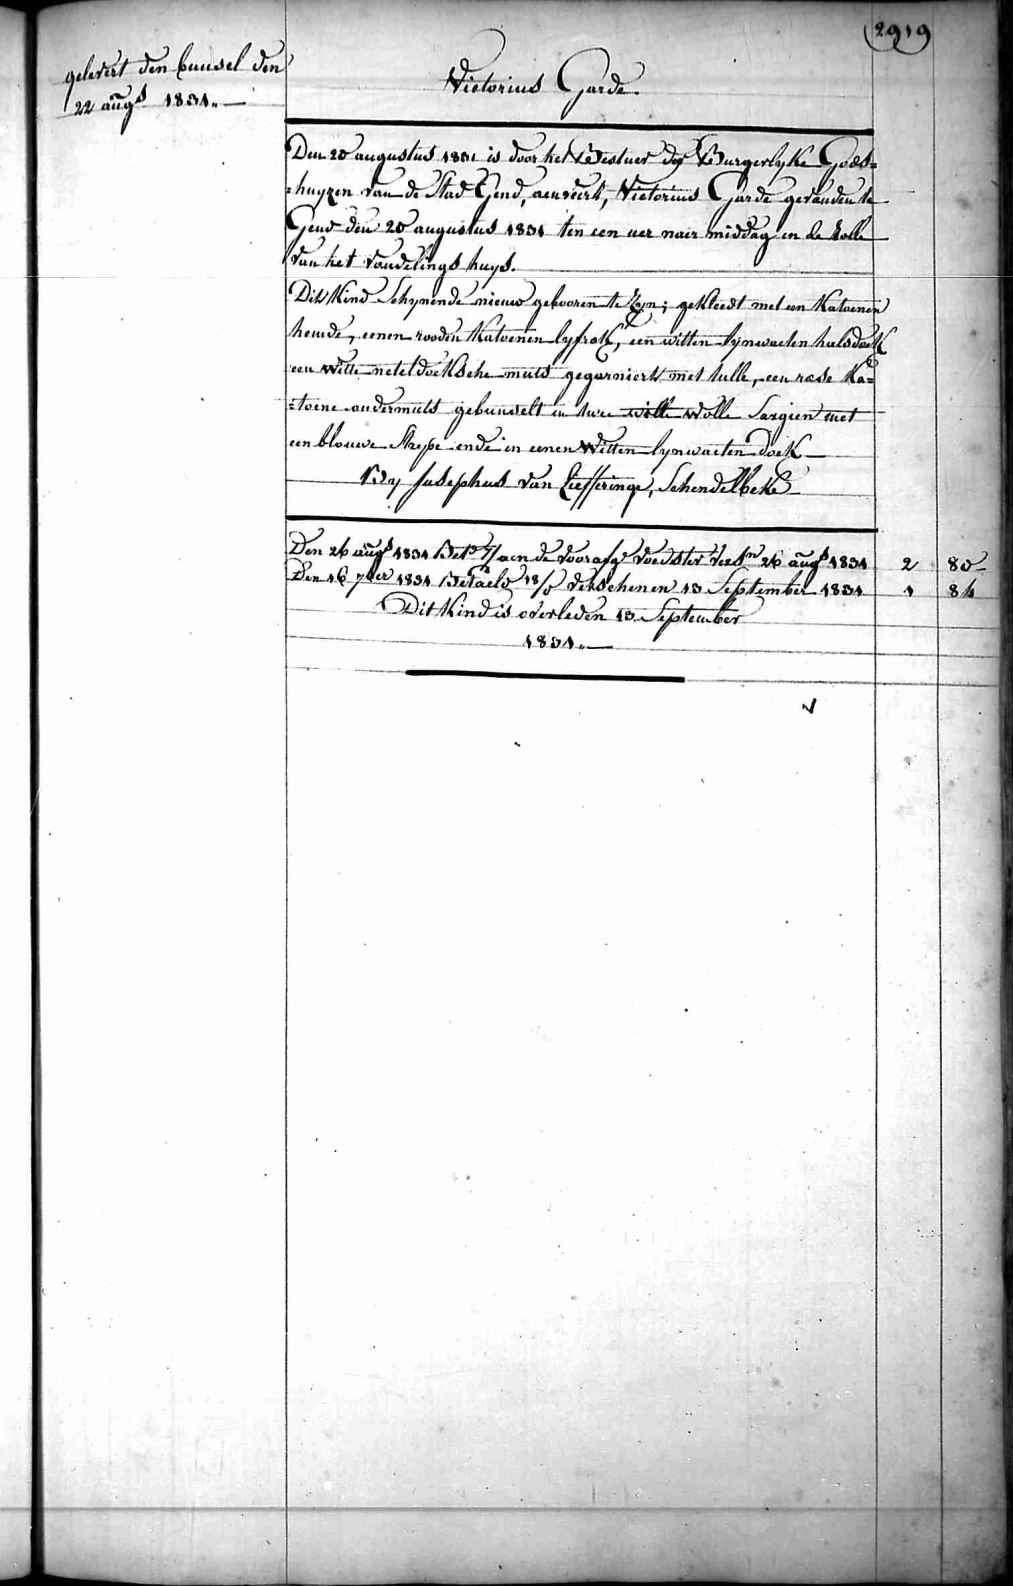 2919
gelevert den bunsel den
22 augs 1831.—
Victorius Garde.
Den 20 augustus 1831 is door het Bestuer der Burgerlyke Gods=
=huyzen van de Stad Gend, aenveirt, Victorius Garde gevonden te
Gend den 20 augustus 1831 ten een uer naer middag in de Rolle
van het vondelings huys.
Dit Kind Schynende nieuw gebooren te Zyn; gekleedt met een Katoenen
hemde, eenen rooden Katoenen lyfrok, een witten lynwaeten halsdoek
een witte neteldoeksche muts gegarniert met tulle, een rose Ka=
=toene ondermuts gebunselt in twee wolle Sargien met
een blouwe Strepe ende in eenen Witten lynwaeten Doek
By Josephus van Liefferinge, Schendelbeke
Den 26 augs 1831 Betd aen de voorafge voedster 26 augs 1831 2 80
Den 16 7ber 1831 Betaeld verschenen 13 September 1831 1 84
Dit Kind is overleden 13 September
1831.—